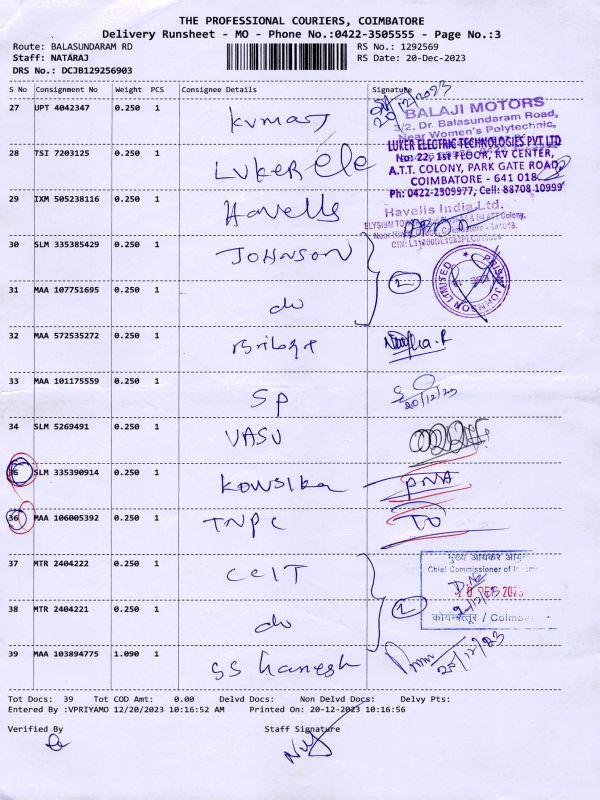 THE PROFESSIONAL COURIERS, COIMBATORE
Delivery Runsheet - MO - Phone No.:0422-3505555 - Page No.:3
Route: BALASUNDARAM RD
RS No.: 1292569
Staff: NATARAJ
RS Date: 20-Dec-2023
DRS No.: DCJB129256903
S No Consignment No Weight PCS Consignee Details Signature
27 UPT 4042347 0.250 1 Kumar
20/12/2023
BALAJI MOTORS
3/2. Dr. Balasundaram Road,
Near Women's Polytechnic,
28 TSI 7203125 0.250 1 LUKER Ele
LUKER ELECTRIC TECHNOLOGIES PVT LTD
No: 22, 1st FLOOR, RV CENTER,
A.T.T. COLONY, PARK GATE ROAD
COIMBATORE - 641 018.
Ph: 0422-2309977, Cell: 88708 10999
29 IXM 505238116 0.250 1 Havells
Havells India Ltd.
30 SLM 335385429 0.250 1 JOHNSON
2
PRISM JOHNSON LIMITED
31 MAA 107751695 0.250 1 do
32 MAA 572535272 0.250 1
33 MAA 101175559 0.250 1 SP
20/12/23
34 SLM 5269491 0.250 1 VASU
35 SLM 335390914 0.250 1 KOWSIKA PNA
36 MAA 106005392 0.250 1 TNPC TO
37 MTR 2404222 0.250 1 CCIT
मुख्य आयकर
Chief Commissioner of
20 DEC 2023
38 MTR 2404221 0.250 1 do
2
कोयम्बत्तूर / Coimba
39 MAA 103894775 1.090 1 SS Ganesh
20/12/23
Tot Docs: 39 Tot COD Amt: 0.00 Delvd Docs: Non Delvd Docs: Delvy Pts:
Entered By :VPRIYAMO 12/20/2023 10:16:52 AM Printed On: 20-12-2023 10:16:56
Verified By Staff Signature